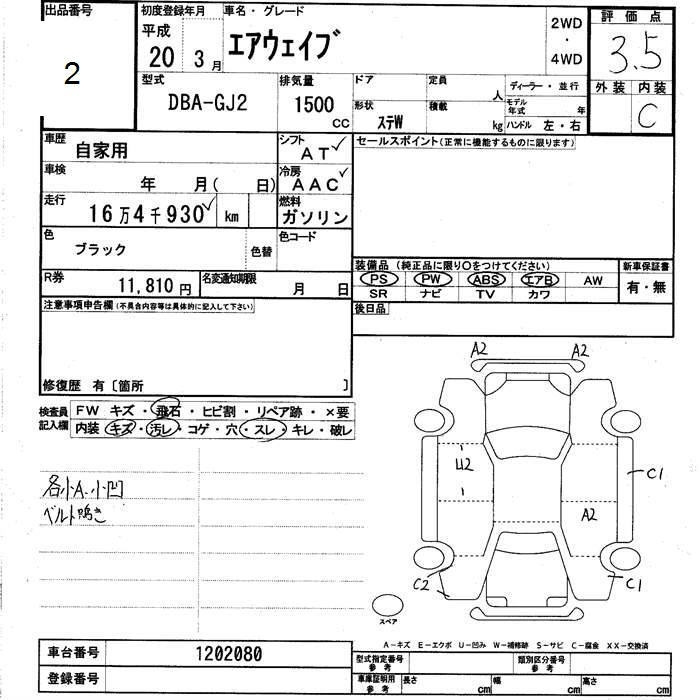 出品番号
2
初度登録年月
平成
20 3月
車名・グレード
エアウェイブ
2WD
・
4WD
評価点
3.5
外装 内装
C
型式
DBA-GJ2
排気量
1500
CC
ドア
定員
人
形状
ステW
積載
kg
ディーラー・並行
モデル年式 年
ハンドル 左・右
車歴
自家用
シフト
AT✓
車検
年 月( 日)
冷房
AAC✓
走行
16万4千930✓ km
燃料
ガソリン
色
ブラック
色替
色コード
R券
11,810円
名変通知期限
月 日
セールスポイント(正常に機能するものに限ります)
装備品 (純正品に限り○をつけてください)
PS PW ABS エアB AW
SR ナビ TV カワ
新車保証書
有・無
後日品
注意事項申告欄(不具合内容等は具体的に記入して下さい)
修復歴 有〔箇所 〕
検査員記入欄
FW キズ・飛石・ヒビ割・リペア跡・×要
内装 キズ・汚レ・コゲ・穴・スレ・キレ・破レ
各小A.小凹
ベルト鳴き
A2 A2
U2
C1
A2
C2
C1
スペア
A-キズ E-エクボ U-凹み W-補修跡 S-サビ C-腐食 XX-交換済
車台番号 1202080
登録番号
型式指定番号参考
類別区分番号参考
車庫証明用参考
長さ cm 幅 cm 高さ cm